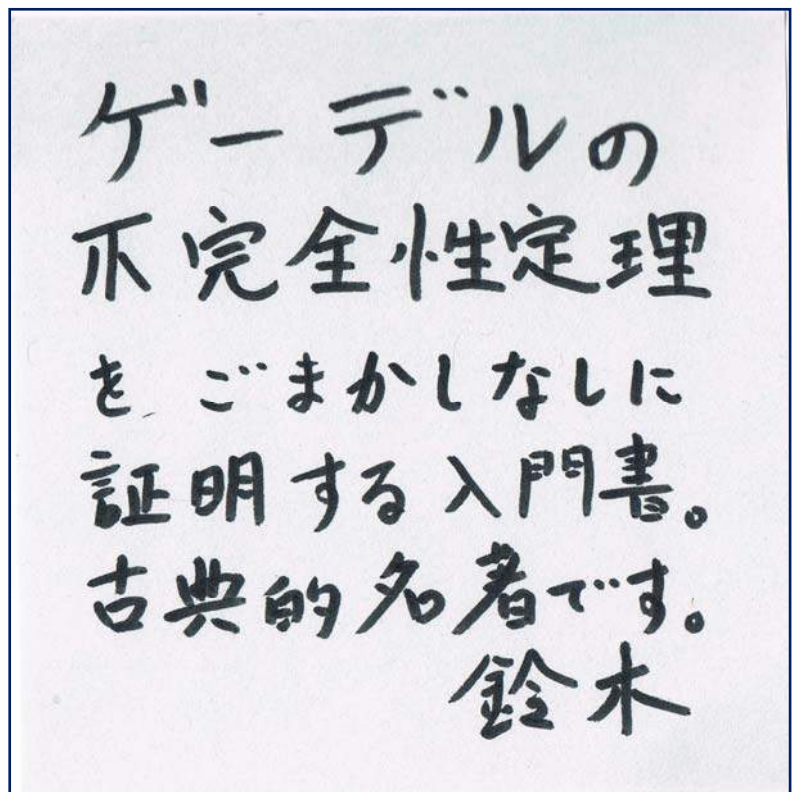 ゲーデルの
不完全性定理
を ごまかしなしに
証明する入門書。
古典的名著です。
鈴木